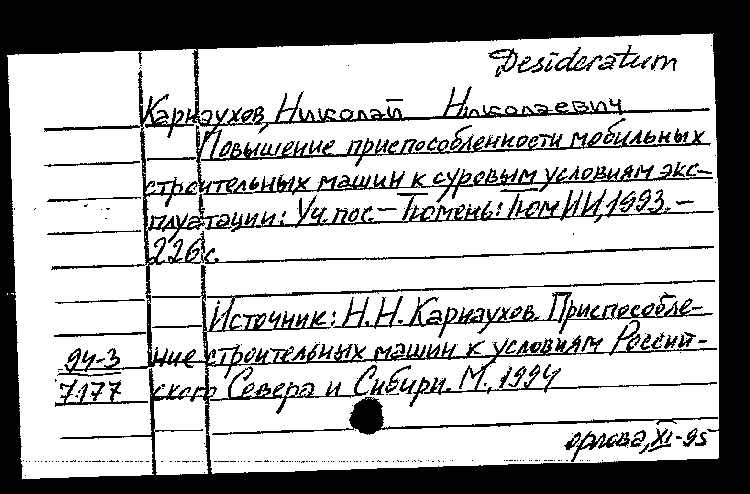 Desideratum
Карнаухов, Николай Николаевич
Повышение приспособленности мобильных
строительных машин к суровым условиям экс-
плуатации: Уч. пос.- Тюмень: ТюмИИ, 1993.-
226 с.
Источник: Н.Н. Карнаухов. Приспособле-
94-3 ние строительных машин к условиям Россий-
7177 ского Севера и Сибири. М., 1994
орлова, XI-95